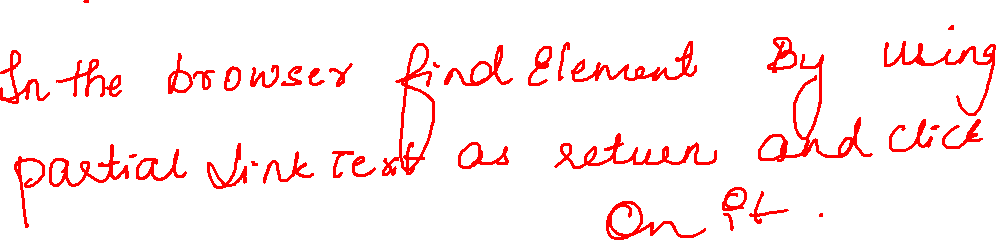 In the browser find Element By using
partial Link Text as return and click
On it.